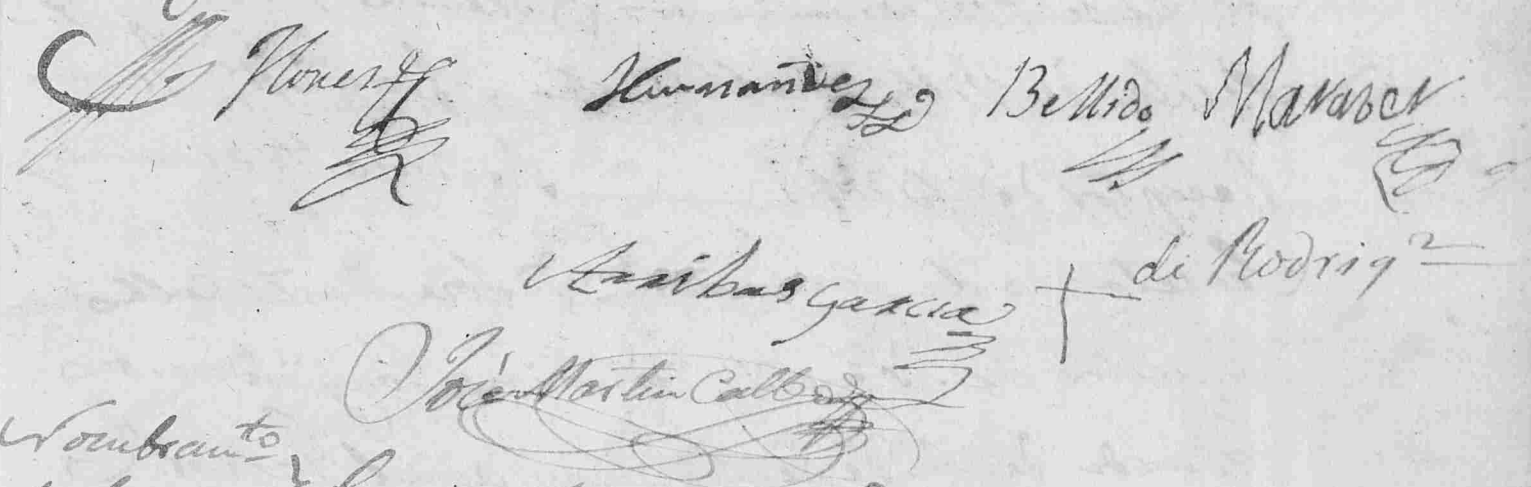 Flores Hernandez Bellido
Arribas Garcia + de Rodrigz
José Martin Calbo
Nombramto